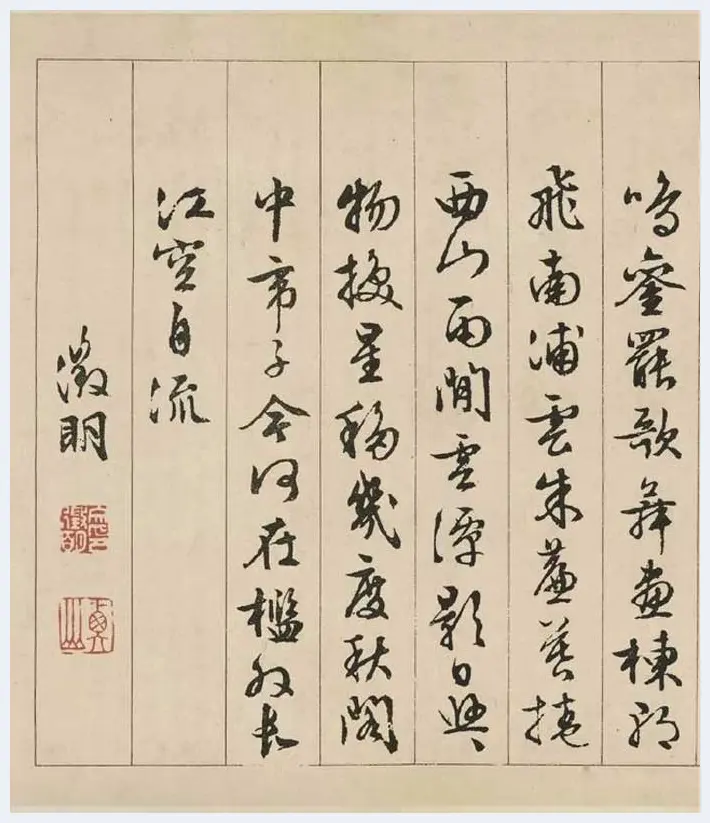 鳴鑾罷歌舞畫棟朝
飛南浦雲朱簾暮捲
西山雨閒雲潭影日悠〻
物換星移幾度秋閣
中帝子今何在檻外長
江空自流
徵明